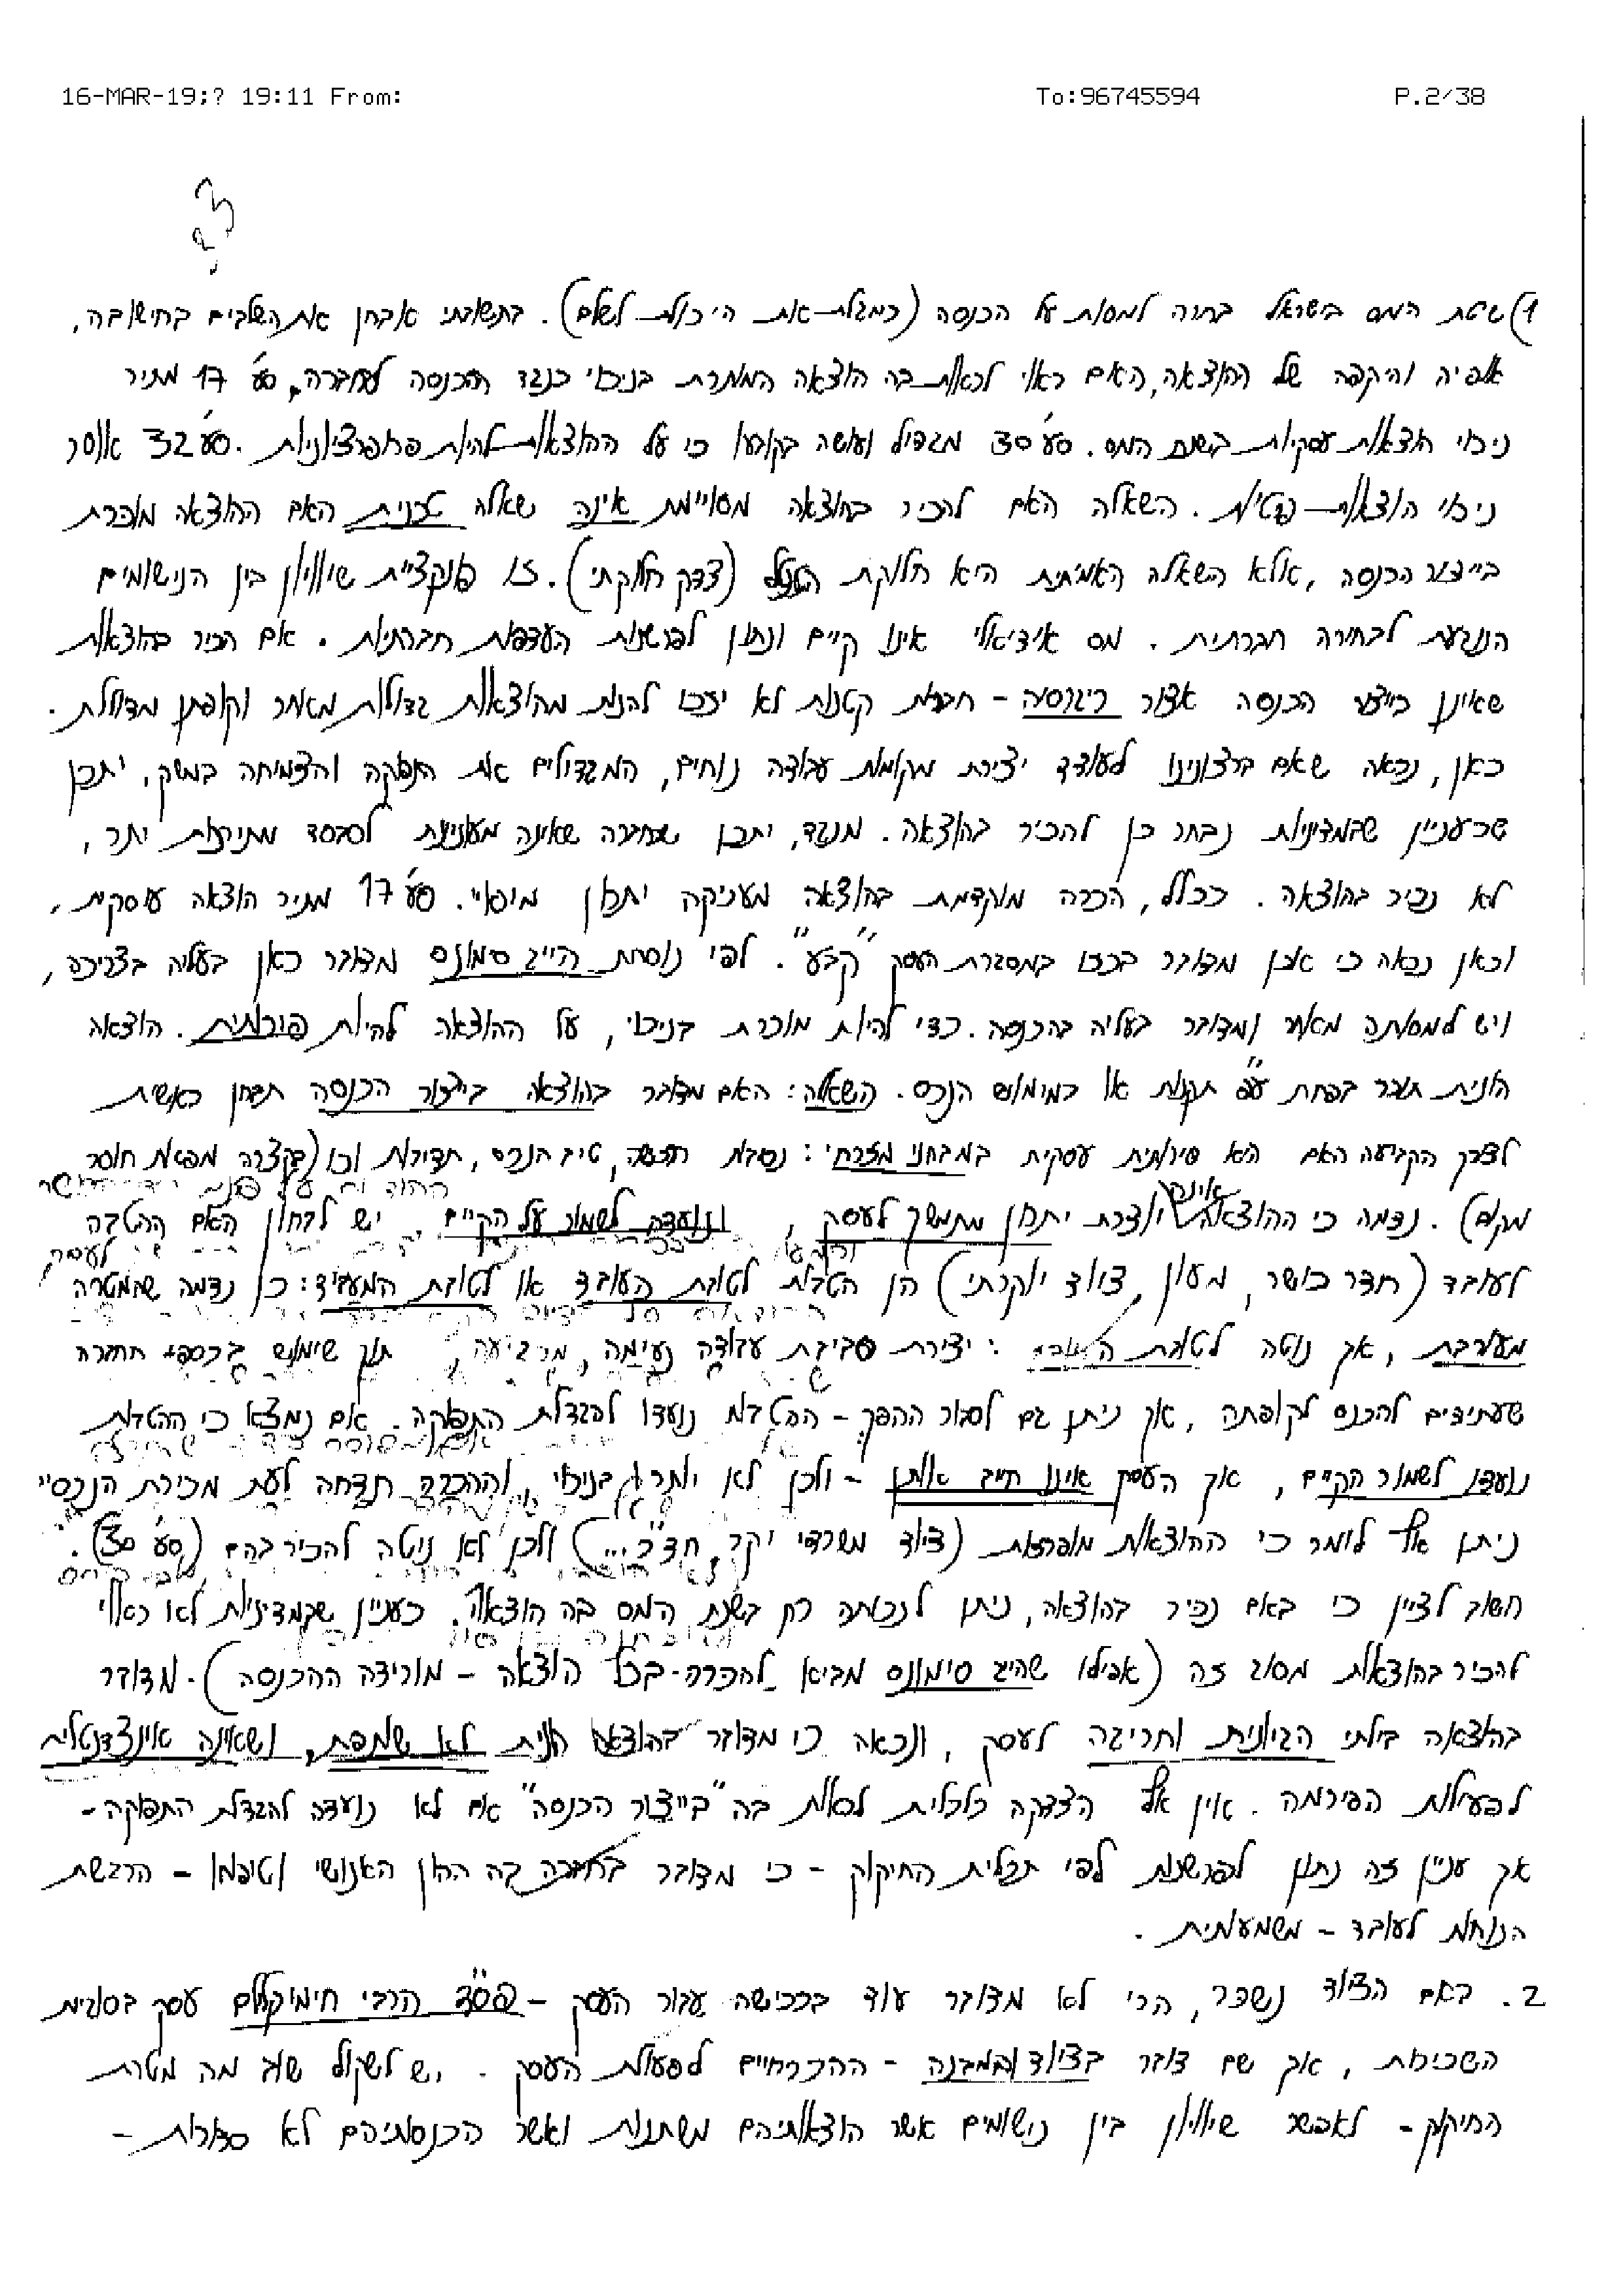 16-MAR-19;? 19:11 From: To:96745594 P.2/38
1) שיטת המס בישראל בחרה למסות על הכנסה (כמגלת את היכולת לשלם). בתשובתי אבחן את השלבים בחישובה,
אפיה והיקפה של ההוצאה, האם ראוי לראות בה הוצאה המותרת בניכוי כנגד הכנסה לחברה, סע' 17 מתיר
ניכוי הוצאות עסקיות בשנת המס. סע' 30 מגביל ועושה בקובעו כי על ההוצאות להיות פרופורציונליות. סע' 32 אוסר
ניכוי הוצאות פרטיות. השאלה האם להכיר בהוצאה מסויימת אינה שאלה טכנית האם ההוצאה מוכרת
בייצור הכנסה, אלא השאלה האמיתית היא חלוקת הנטל (צדק חלוקתי). זו פונקציית שוויון בין הנישומים
הנובעת לבחירה חברתית. מס אידיאלי אינו קיים ונתון לפרשנות העדפות חברתיות. אם נכיר בהוצאות
שאינן בייצור הכנסה אצור ריגרסיה - חברות קטנות לא יזכו להנות מהוצאות גדולות מאחר וקופתן מדולדלת.
כאן, נראה שאם ברצונינו לעודד יצירת מקומות עבודה נוחים, המגדילים את התפוקה והצמיחה במשק, יתכן
שכעניין שבמדיניות נבחר כן להכיר בהוצאה. מנגד, יתכן שחברה שאינה מעוניינת לסבסד מותרות יתר,
לא נכיר בהוצאה. ככלל, הכרה מוקדמת בהוצאה מעניקה יתרון מימוני. סע' 17 מתיר הוצאה עסקית,
וכאן נראה כי אכן מדובר בכזו במסגרת העסק "קבע". לפי נוסחת הייג סימונס מדובר כאן בעליה בצריכה,
ויש למסותה מאחר ומדובר בעליה בהכנסה. כדי להיות מוכרת בניכוי, על ההוצאה להיות פירותית. הוצאה
הונית תוכר בפחת עפ"י תקנות או במימוש הנכס. השאלה: האם מדובר בהוצאה בייצור הכנסה תבחן ראשית
לצורך הקביעה האם היא פירותית עסקית במבחני מזרחי: נסיבות רכישה, טיב הנכס, תדירות וכו' (בקצרה מפאת חוסר
מקום). נדמה כי ההוצאה אינה יוצרת יתרון מתמשך לעסק, ונועדה לשמור על הקיים. יש לבחון האם ההטבה
לעובד (חדר כושר, מעון, ציוד יוקרתי) הן הטבות לטובת העובד או לטובת המעביד: כן נדמה שהמטרה
מעורבת, אך נוטה לטובת : יצירת סביבת עבודה נעימה, מרגיעה, תוך שימוש בכספי החברה
שעתידים להכנס לקופתה, אך ניתן גם לסבור ההפך - ההטבות נועדו להגדלת התפוקה. אם נמצא כי ההטבות
נועדו לשמור הקיים, אך העסק איננו חייב אותן - ולכן לא יותרו בניכוי, וההכרה תדחה לעת מכירת הנכס
ניתן אף לומר כי ההוצאות מופרזות (ציוד משרדי יקר, חד"כ...) ולכן לא ניטה להכיר בהם (סע' 30).
חשוב לציין כי באם נכיר בהוצאה, ניתן לנכותה רק בשנת המס בה הוצאה. כעניין שבמדיניות לא ראוי
להכיר בהוצאות מסוג זה (אפילו שהייג סימונס מביא להכרה בכל הוצאה - מורידה ההכנסה). מדובר
בהוצאה בילתי הגיונית וחריגה לעסק, ונראה כי מדובר בהוצאה הונית לא שוטפת, ושאינה אינצדנטלית
לפעילות הפירמה. אין אף הצדקה כלכלית לראות בה "בייצור הכנסה" אם לא נועדה להגדלת התפוקה -
אך עניין זה נתון לפרשנות לפי תכלית החיקוק - כי מדובר בחברה בה ההון האנושי וטיפוחו - הרגשת
הנוחות לעובד - משמעותית.
2. באם הציוד נשכר, הרי לא מדובר עוד ברכישה עבור העסק - פס"ד הרבי חימוקלים עסק בסוגיית
השכירות, אך שם דובר בציוד ובמבנה - ההכרחיים לפעולת העסק. יש לשקול שוב מה מטרת
החיקוק - לאפשר שיוויון בין נישומים אשר הוצאותיהם משתנות ואשר הכנסותיהם לא סדורות -